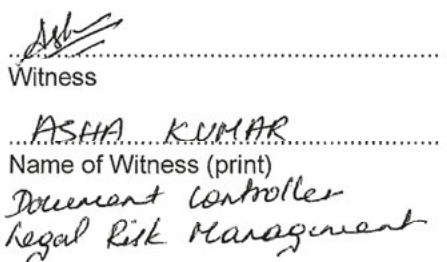 Ash
Witness
ASHA KUMAR
Name of Witness (print)
Document Controller
Legal Risk Management